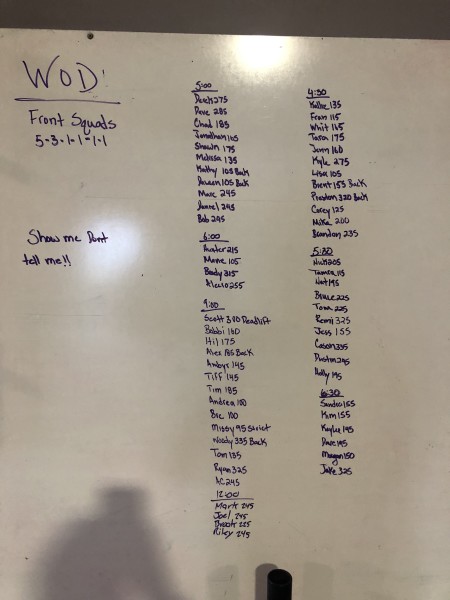 WOD
Front Squads
5-3-1-1-1-1
Show me Dont
tell me!!
5:00
275
Dave 285
Chad 185
Jonathan 105
Shawn 175
Melissa 135
Kathy 105 Back
105 Back
Marc 245
245
Bob 245
6:00
Hunter 215
105
Brady 315
255
9:00
Scott 300 Deadlift
Bobbi 160
175
Alex 185 Back
145
Tiff 145
Tim 185
Andrea 100
100
Missy 95 Strict
Woody 335 Back
Tom 135
Ryan 325
AC 245
12:00
Mark 245
Joel 245
Brook 225
Riley 245
4:30
135
Fran 115
Whit 165
Tara 175
Jenn 160
Kyle 275
Lisa 105
Brent 155 Back
Preston 320 Back
Corey 125
Mika 200
Brandon 235
5:30
205
Tamra 115
Nat 195
Bruce 225
Tona 225
Remi 325
Jess 155
Cason 335
Dustin
Holly 195
6:30
Sandra 155
Kim 155
Kaylie 145
Dave 195
Megan 150
Jake 325